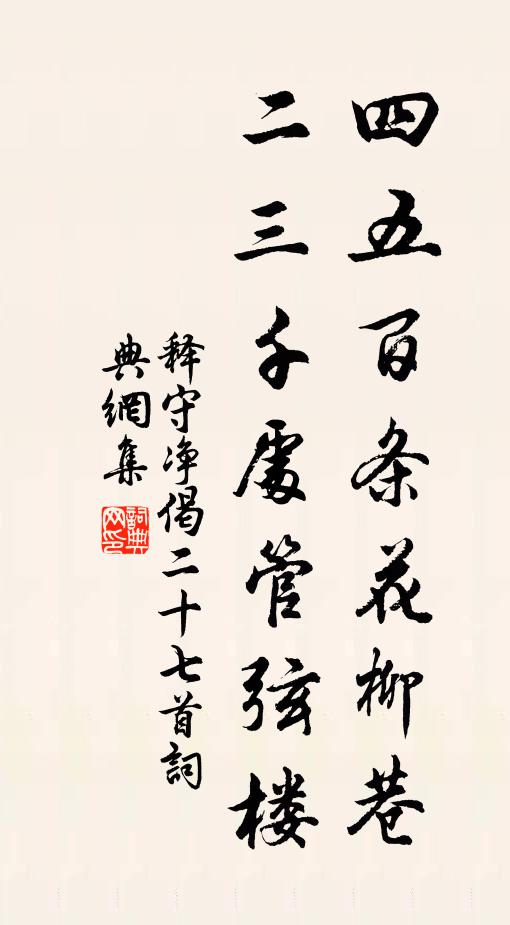 四五百条花柳巷
二三千處管弦楼
释守净偈二十七首詞
典網集
詞典网印